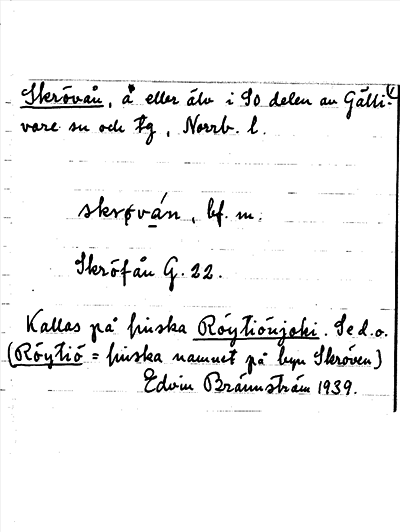 Skrövån, å eller älv i SO delen av Gälli-
vare sn och tg, Norrb. l.
skrǫván, bf. m.
Skröfån G. 22.
Kallas på finska Röytiönjoki. Se d.o.
(Röytiö = finska namnet på byn Skröven)
Edvin Brännström 1939.